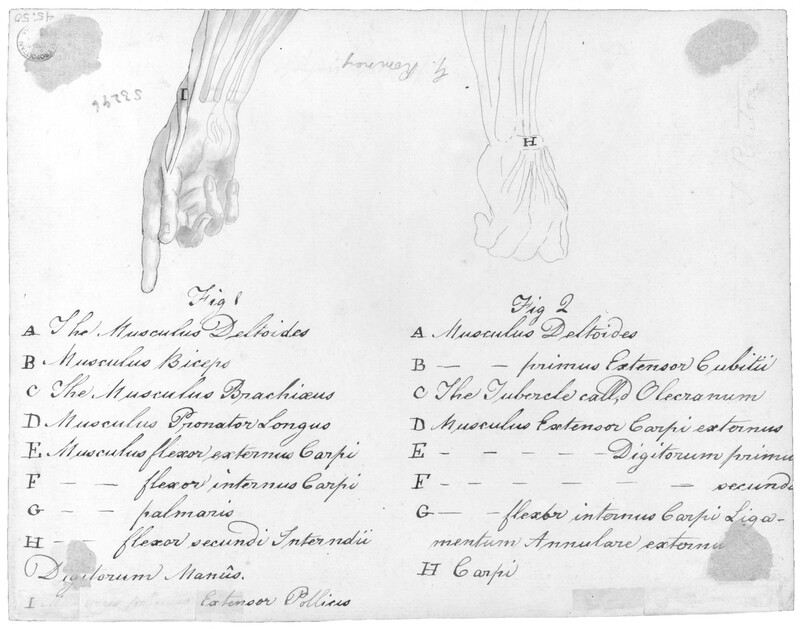 45.50
S3296
G. Romney
I
H
Fig 1
A The Musculus Deltoides
B Musculus Biceps
C The Musculus Brachiæus
D Musculus Pronator Longus
E Musculus flexor externus Carpi
F — — flexor internus Carpi
G — — palmaris
H — — flexor secundi Interndii
Digitorum Manûs.
I Extensor Pollicis
Fig 2
A Musculus Deltoides
B — — primus Extensor Cubitii
C The Tubercle call,d Olecranum
D Musculus Extensor Carpi externus
E — — — — — Digitorum primu
F — — — — — — secund
G — — flexor internus Carpi Liga-
mentum Annulare externu
H Carpi